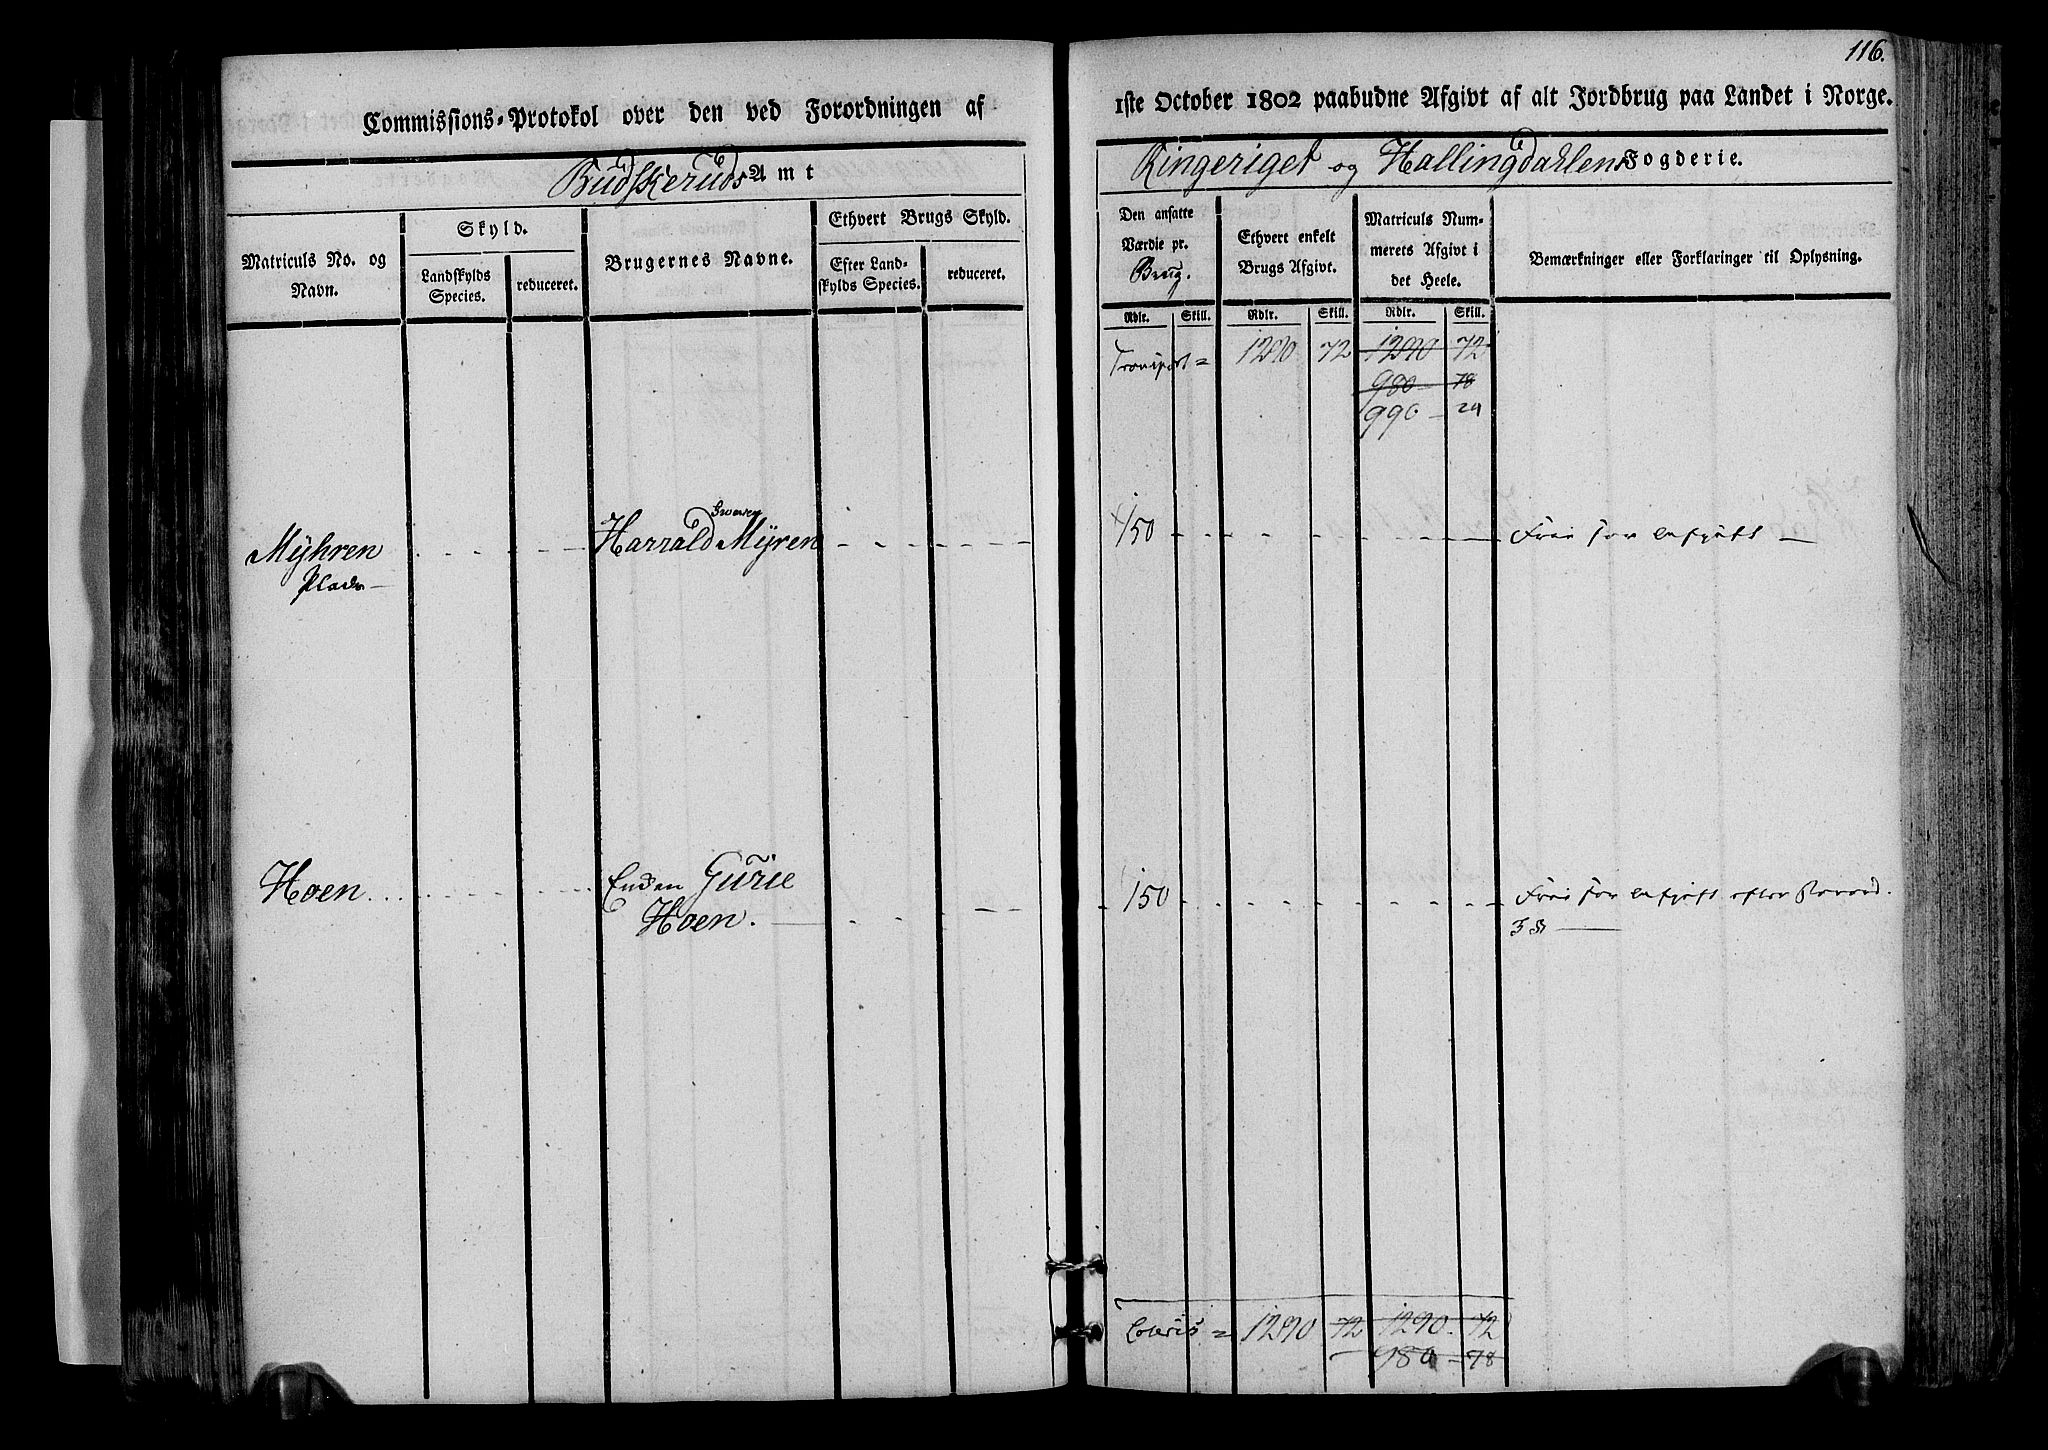 116.
Commissions-Protokol over den ved Forordningen af 1ste October 1802 paabudne Afgivt af alt Jordbrug paa Landet i Norge.
Budskeruds Amt
Ringeriget og Hallingdahlens Fogderie.
Matriculs No. og Navn.
Skyld.
Landskylds Species.
reduceret.
Brugernes Navne.
Ethvert Brugs Skyld.
Efter Landskylds Species.
reduceret.
Den ansatte Værdie pr. Brug.
Ethvert enkelt Brugs Afgivt.
Matriculs Nummerets Afgivt i det Heele.
Bemærkninger eller Forklaringer til Oplysning.
Rdlr. Skill. Rdlr. Skill. Rdlr. Skill.
Transport = 1290 72 1290 72
980 78
990 - 24
Myhren Harrald Myren 150 Frie for Afgift —
Plads
Hoen Enken Gurie 150 Frie for Afgift efter Forord.
Hoen. 3 §
Lateris = 1290 72 1290. 72
980 - 78